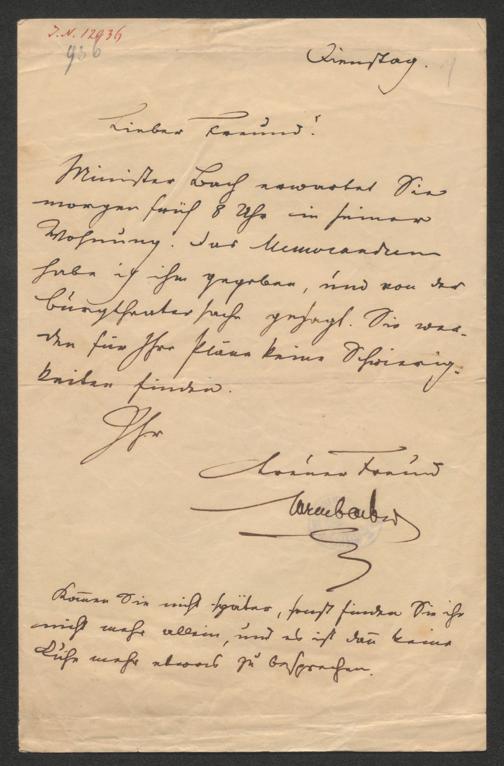 J.N. 12936
936
Dienstag.
Lieber Freund!
Minister Bach erwartet Sie
morgen früh 8 Uhr in seiner
Wohnung. Das Memorandum
habe ich ihm gegeben, und von der
Burgtheatersache gesagt. Sie wer-
den für Ihre Pläne keine Schwierig-
keiten finden.
Ihr
treuer Freund
Komen Sie nicht später, sonst finden Sie ihn
nicht mehr allein, und es ist dan keine
Ruhe mehr etwas zu besprechen.